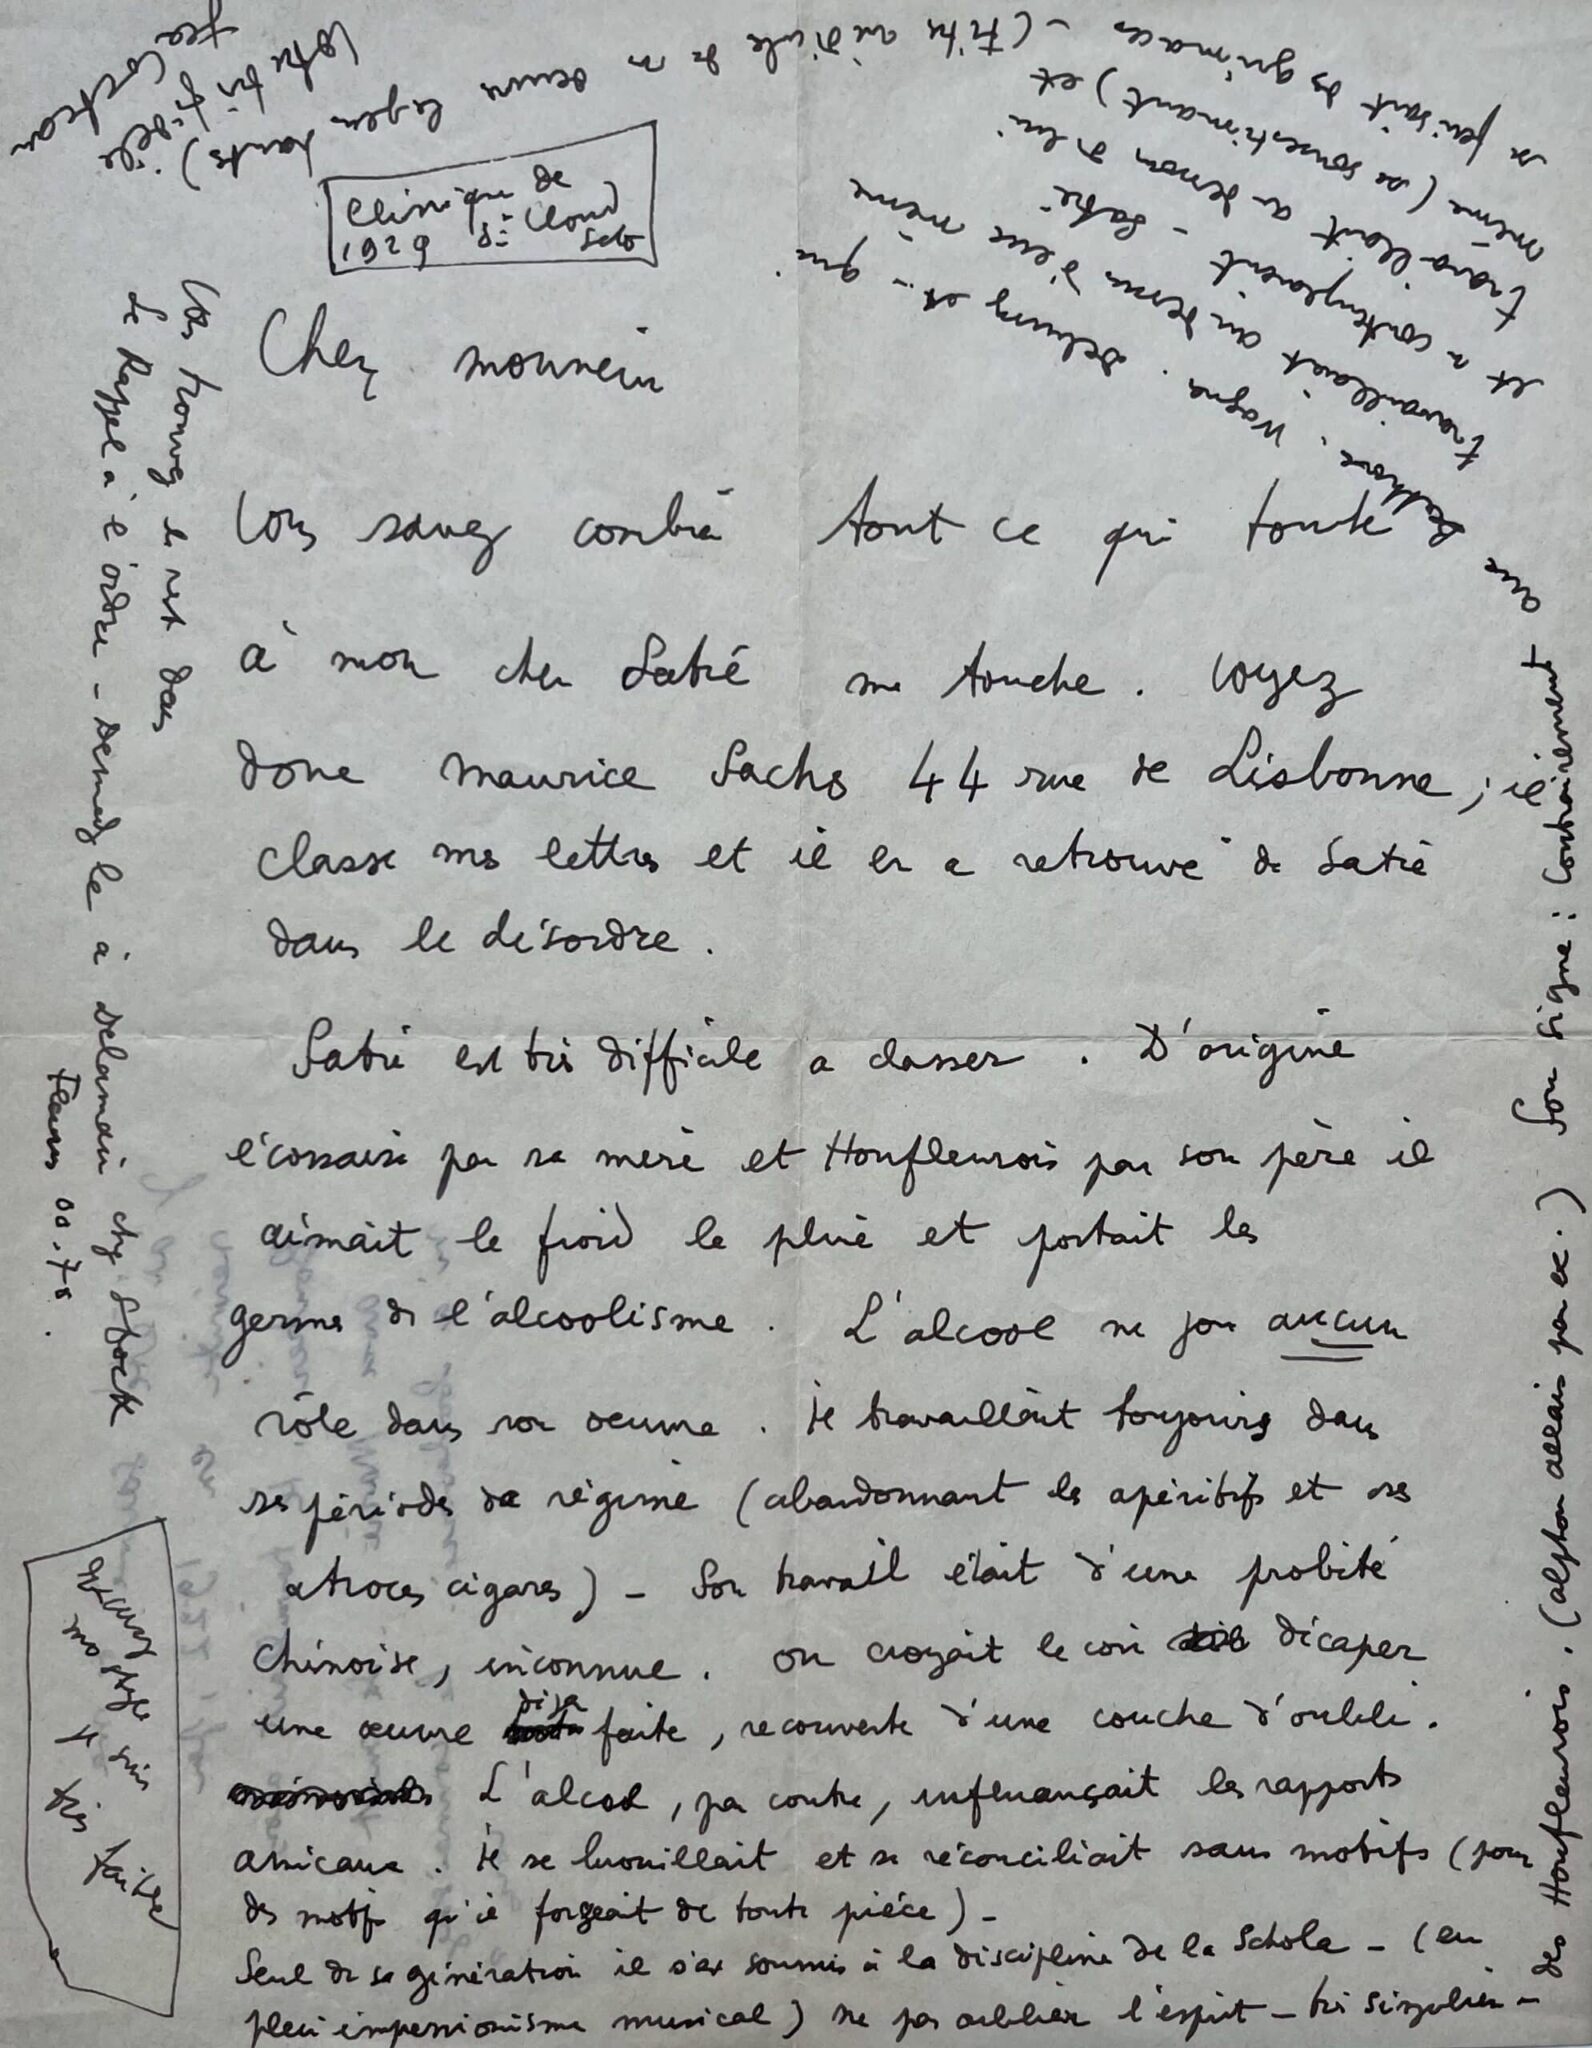 Clinique de
1929 St Cloud
Seto
Cher monsieur
Vous savez combien tout ce qui touche
à mon cher Satie me touche. Voyez
donc Maurice Sachs 44 rue de Lisbonne; il
classe mes lettres et il en a retrouvé de Satie
dans le désordre.
Satie est très difficile a classer. D'origine
écossaise par sa mère et Honfleurois par son père il
aimait le froid la pluie et portait les
germes de l'alcoolisme. L'alcool ne joua aucun
rôle dans son oeuvre. Il travaillait toujours dans
ses périodes de régime (abandonnant les apéritifs et ses
atroces cigares) - Son travail était d'une probité
chinoise, inconnue. On croyait le voir décaper
une œuvre déja faite, recouverte d'une couche d'oubli.
L'alcool, par contre, influençait les rapports
amicaux. Il se brouillait et se réconciliait sans motifs (pour
des motifs qu'il forgeait de toute pièce) -
Seul de sa génération il s'est soumis à la discipline de la Schola - (en
plein impressionisme musical) ne pas oublier l'esprit - très singulier -
des Honfleurois. (Alphon Allais par ex.) Son signe: Contrairement aux
Beethoven, Wagner, Debussy etc - qui
travaillaient au dessus d'eux même
et se contemplaient - Satie
travaillait au dessous de lui
même (se sousestimant) et
se faisait des grimaces - (titre ridicule de ses
oeuvres légères
Votre très fidèle
Jean Cocteau
Vous trouverez le reste dans
le Rappel à l'ordre - Demandez le à Delamain chez Stock
Fleurus 00.78.
Excusez
mon style
je suis
très fatigué